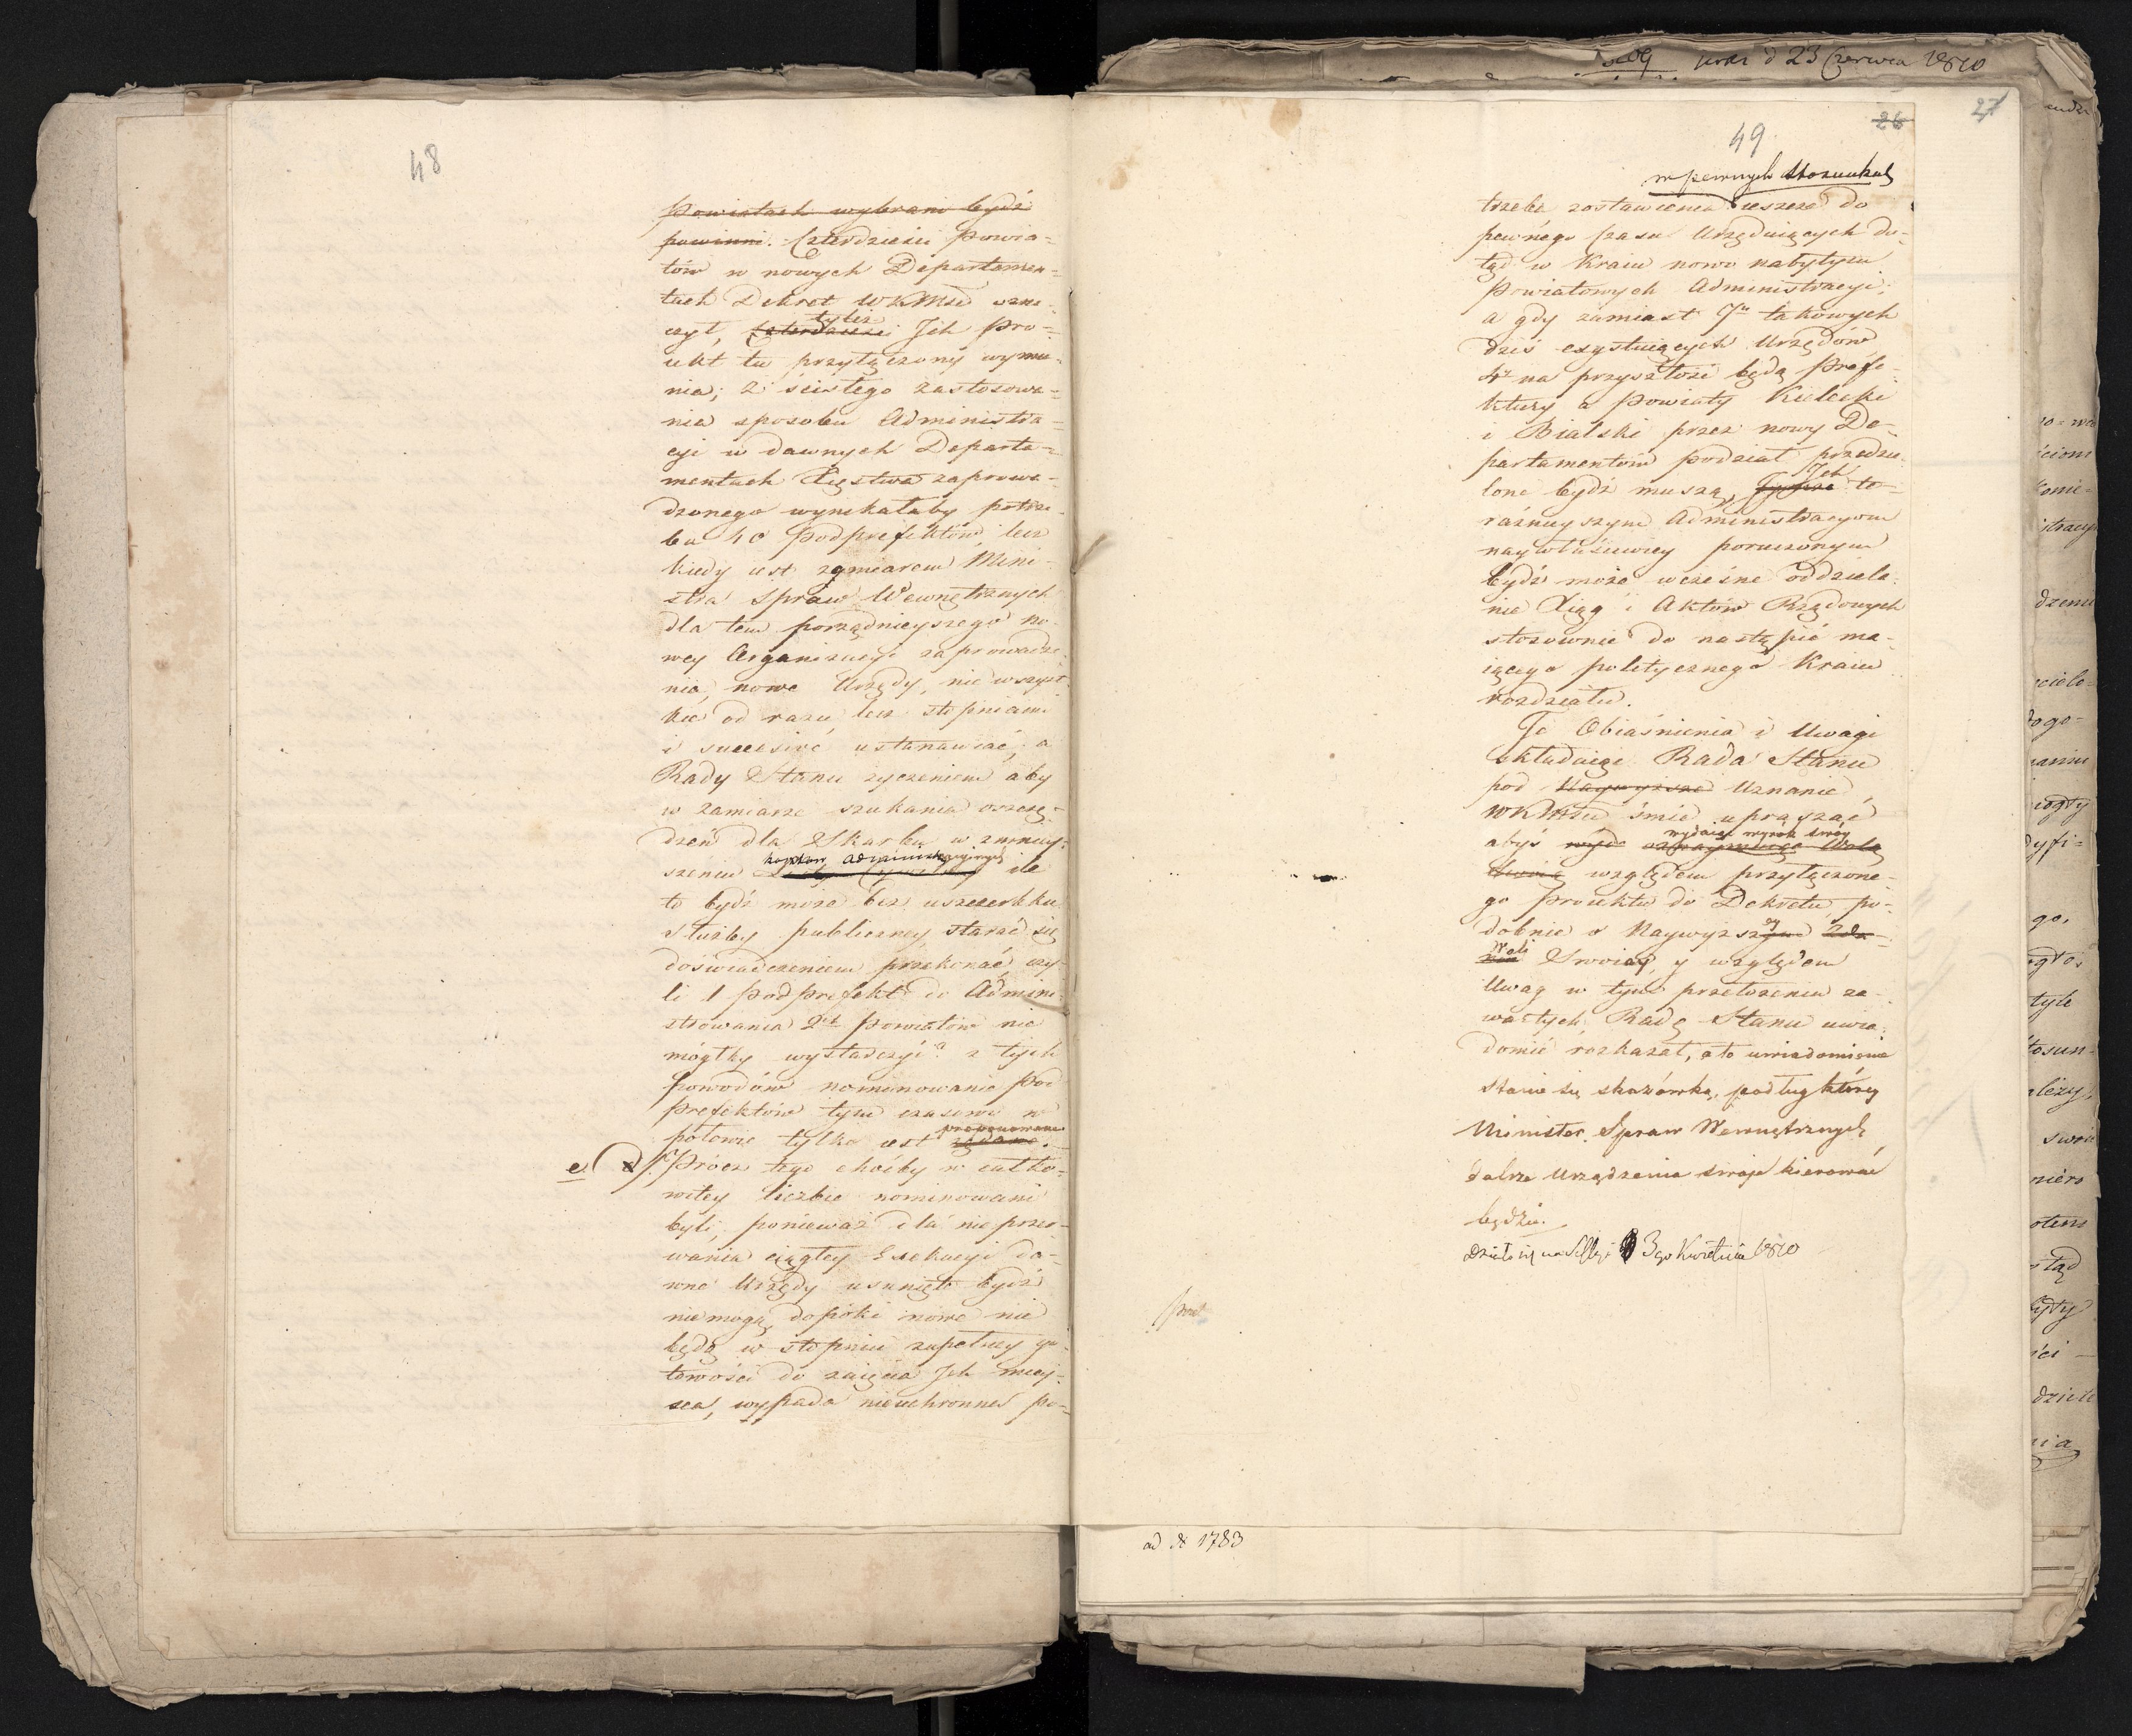 48
Powiatach wybrani bydź
powinni. Czterdzieści Powia=
tów w nowych Departamen=
tach Dekret WKMci ozna=
czył, tyleż czterdzieści Ich Pro=
iekt tu przyłączony wymie=
nia; z ścisłego zastosowa=
nia sposobu Administra=
cyi w dawnych Departa=
mentach Xięstwa zaprowa=
dzonego wynikałaby potrze=
ba 40 Podprefektów, lecz
kiedy iest zamiarem Mini=
stra Spraw Wewnętrznych
dla tem porządnieyszego no=
wey Organizacyi zaprowadze=
nia, nowe Urzędy, nie wszyst=
kie od razu lecz stopniami
i successive ustanawiać, a
Rady Stanu życzeniem aby
w zamiarze szukania oszczę=
dzeń dla Skarbu w zmniey=
kosztów administracyinych
szeniu ile
to bydź może bez uszczerbku
służby publiczney, starać się
doświadczeniem przekonać, czy=
li 1 Podprefekt do Admini=
strowania 2ch Powiatów nie
mógłby wystarczyć? z tych
powodów nominowanie Pod
prefektów tym czasowo w
proponowane
połowie tylko iest żądane.
e. Prócz tego choćby w całko=
witey liczbie nominowani
byli, ponieważ dla nie przer=
wania ciągłey Exekucyi da=
wne Urzędy usunięte bydź
nie mogą, dopóki nowe nie
będą w stopniu zupełney go=
towości do zaięcia Ich miey=
sca, wypada nieuchronna po=
49
26
27
w pewnych stosunkach
trzeba zostawienia ieszcze do
pewnego czasu Urzęduiących do=
tąd w Kraiu nowo nabytym
Powiatowych Administracyi;
a gdy zamiast 7u takowych
dziś exystuiących Urzędów
4ry na przyszłość będą Prefe=
ktury a Powiaty Kielecki
i Bialski przez nowy De=
partamentów podział przedzie=
Ich
lone bydź muszą, te=
raźnieyszym Administracyom
naywłaściwiey poruczonym
bydź może wczesne oddziele=
nie Xiąg i Aktów Rządowych
stosownie do nastąpić ma=
iącego politycznego Kraiu
rozdziału.
Te Obiaśnienia i Uwagi
składaiąc Rada Stanu
pod Naywyższe Uznanie
WKMci śmie upraszać
wydaiąc wyrok swóy
abyś Wolę
Swoię względem przyłączone=
go Proiektu do Dekretu, po=
dobnie o Naywyższey
Woli Swoiey y względem
Uwag w tym przełożeniu za=
wartych Radę Stanu uwia=
domić rozkazał, a to uwiadomienie
stanie się skazówką, podług którey
Minister Spraw Wewnętrznych
dalsze Urządzenia swoje kierować
będzie.
Działo się na Sessyi 3go Kwietnia 1810
ad N 1783
23 Czerwca 1810